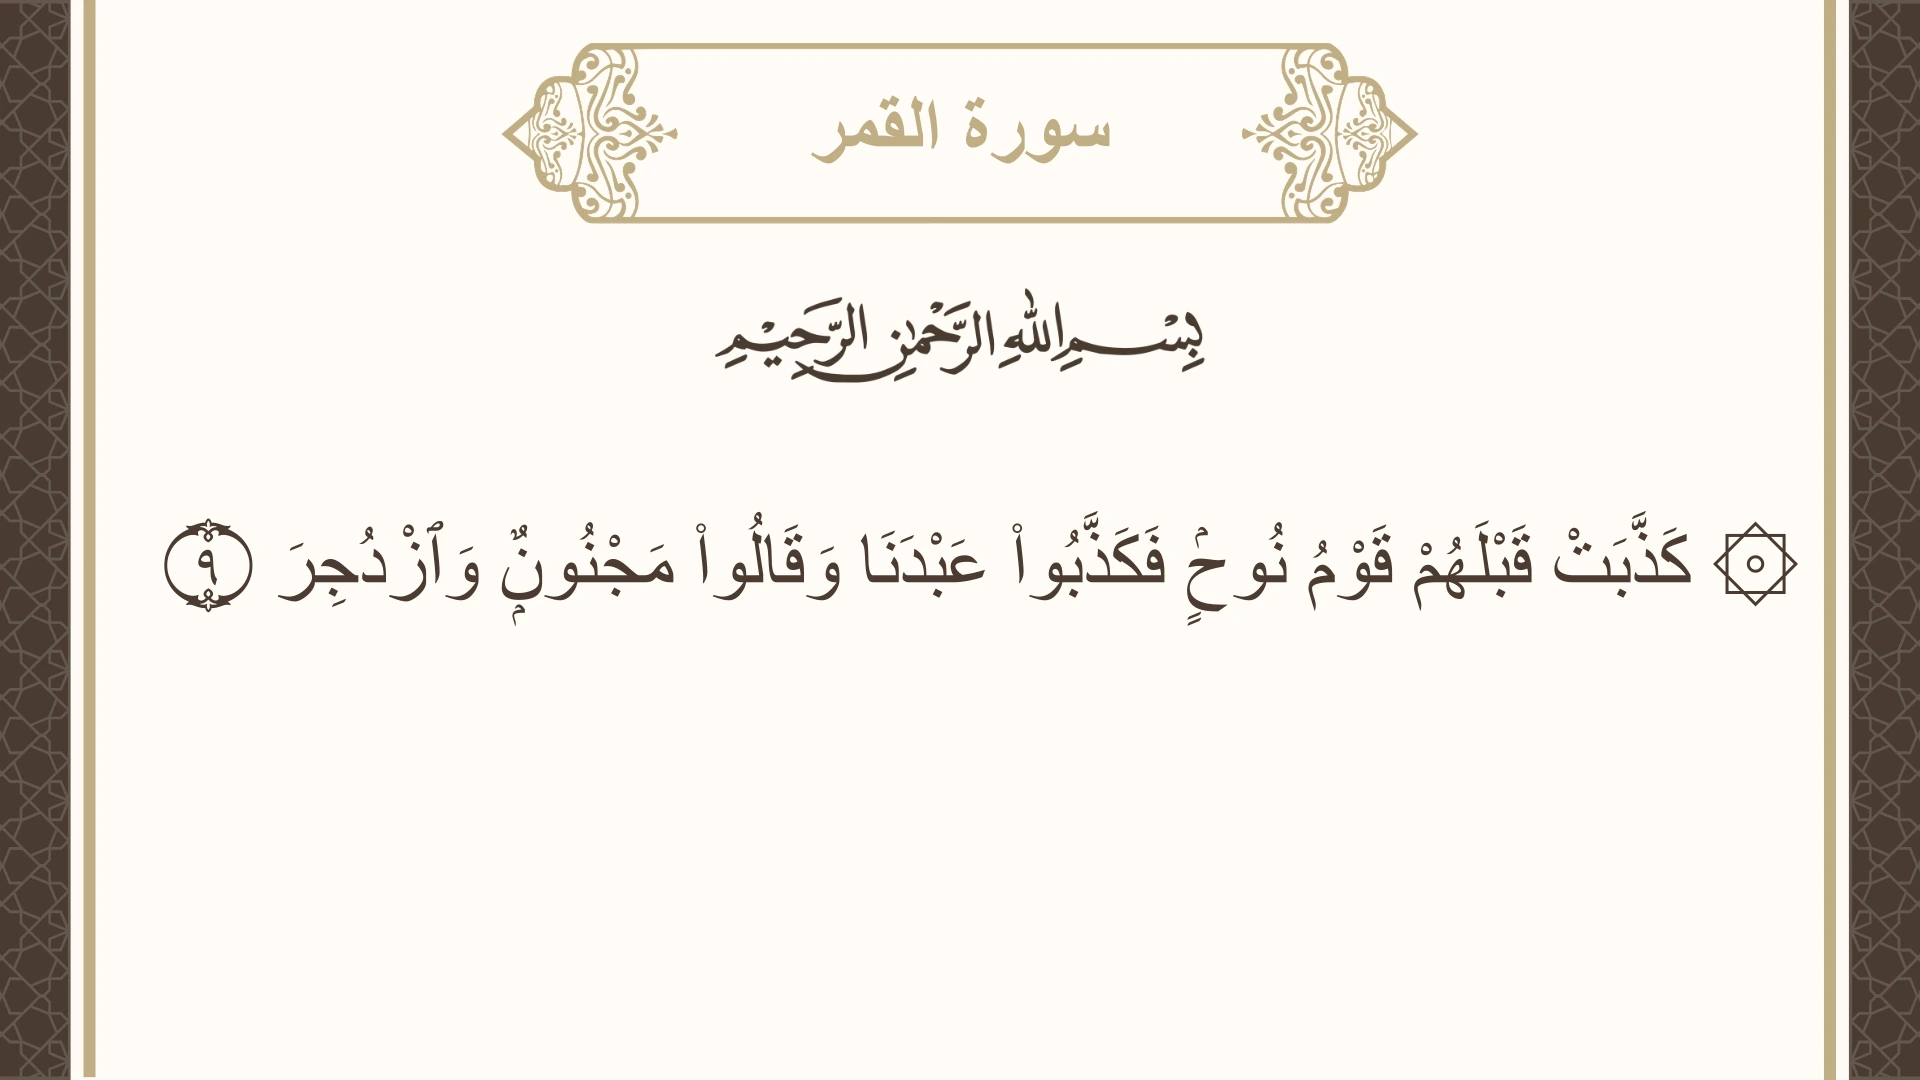 سورة القمر
بِسْمِ اللهِ الرَّحْمٰنِ الرَّحِيْمِ
۞ كَذَّبَتْ قَبْلَهُمْ قَوْمُ نُوحٍۢ فَكَذَّبُوا۟ عَبْدَنَا وَقَالُوا۟ مَجْنُونٌۭ وَٱزْدُجِرَ ٩